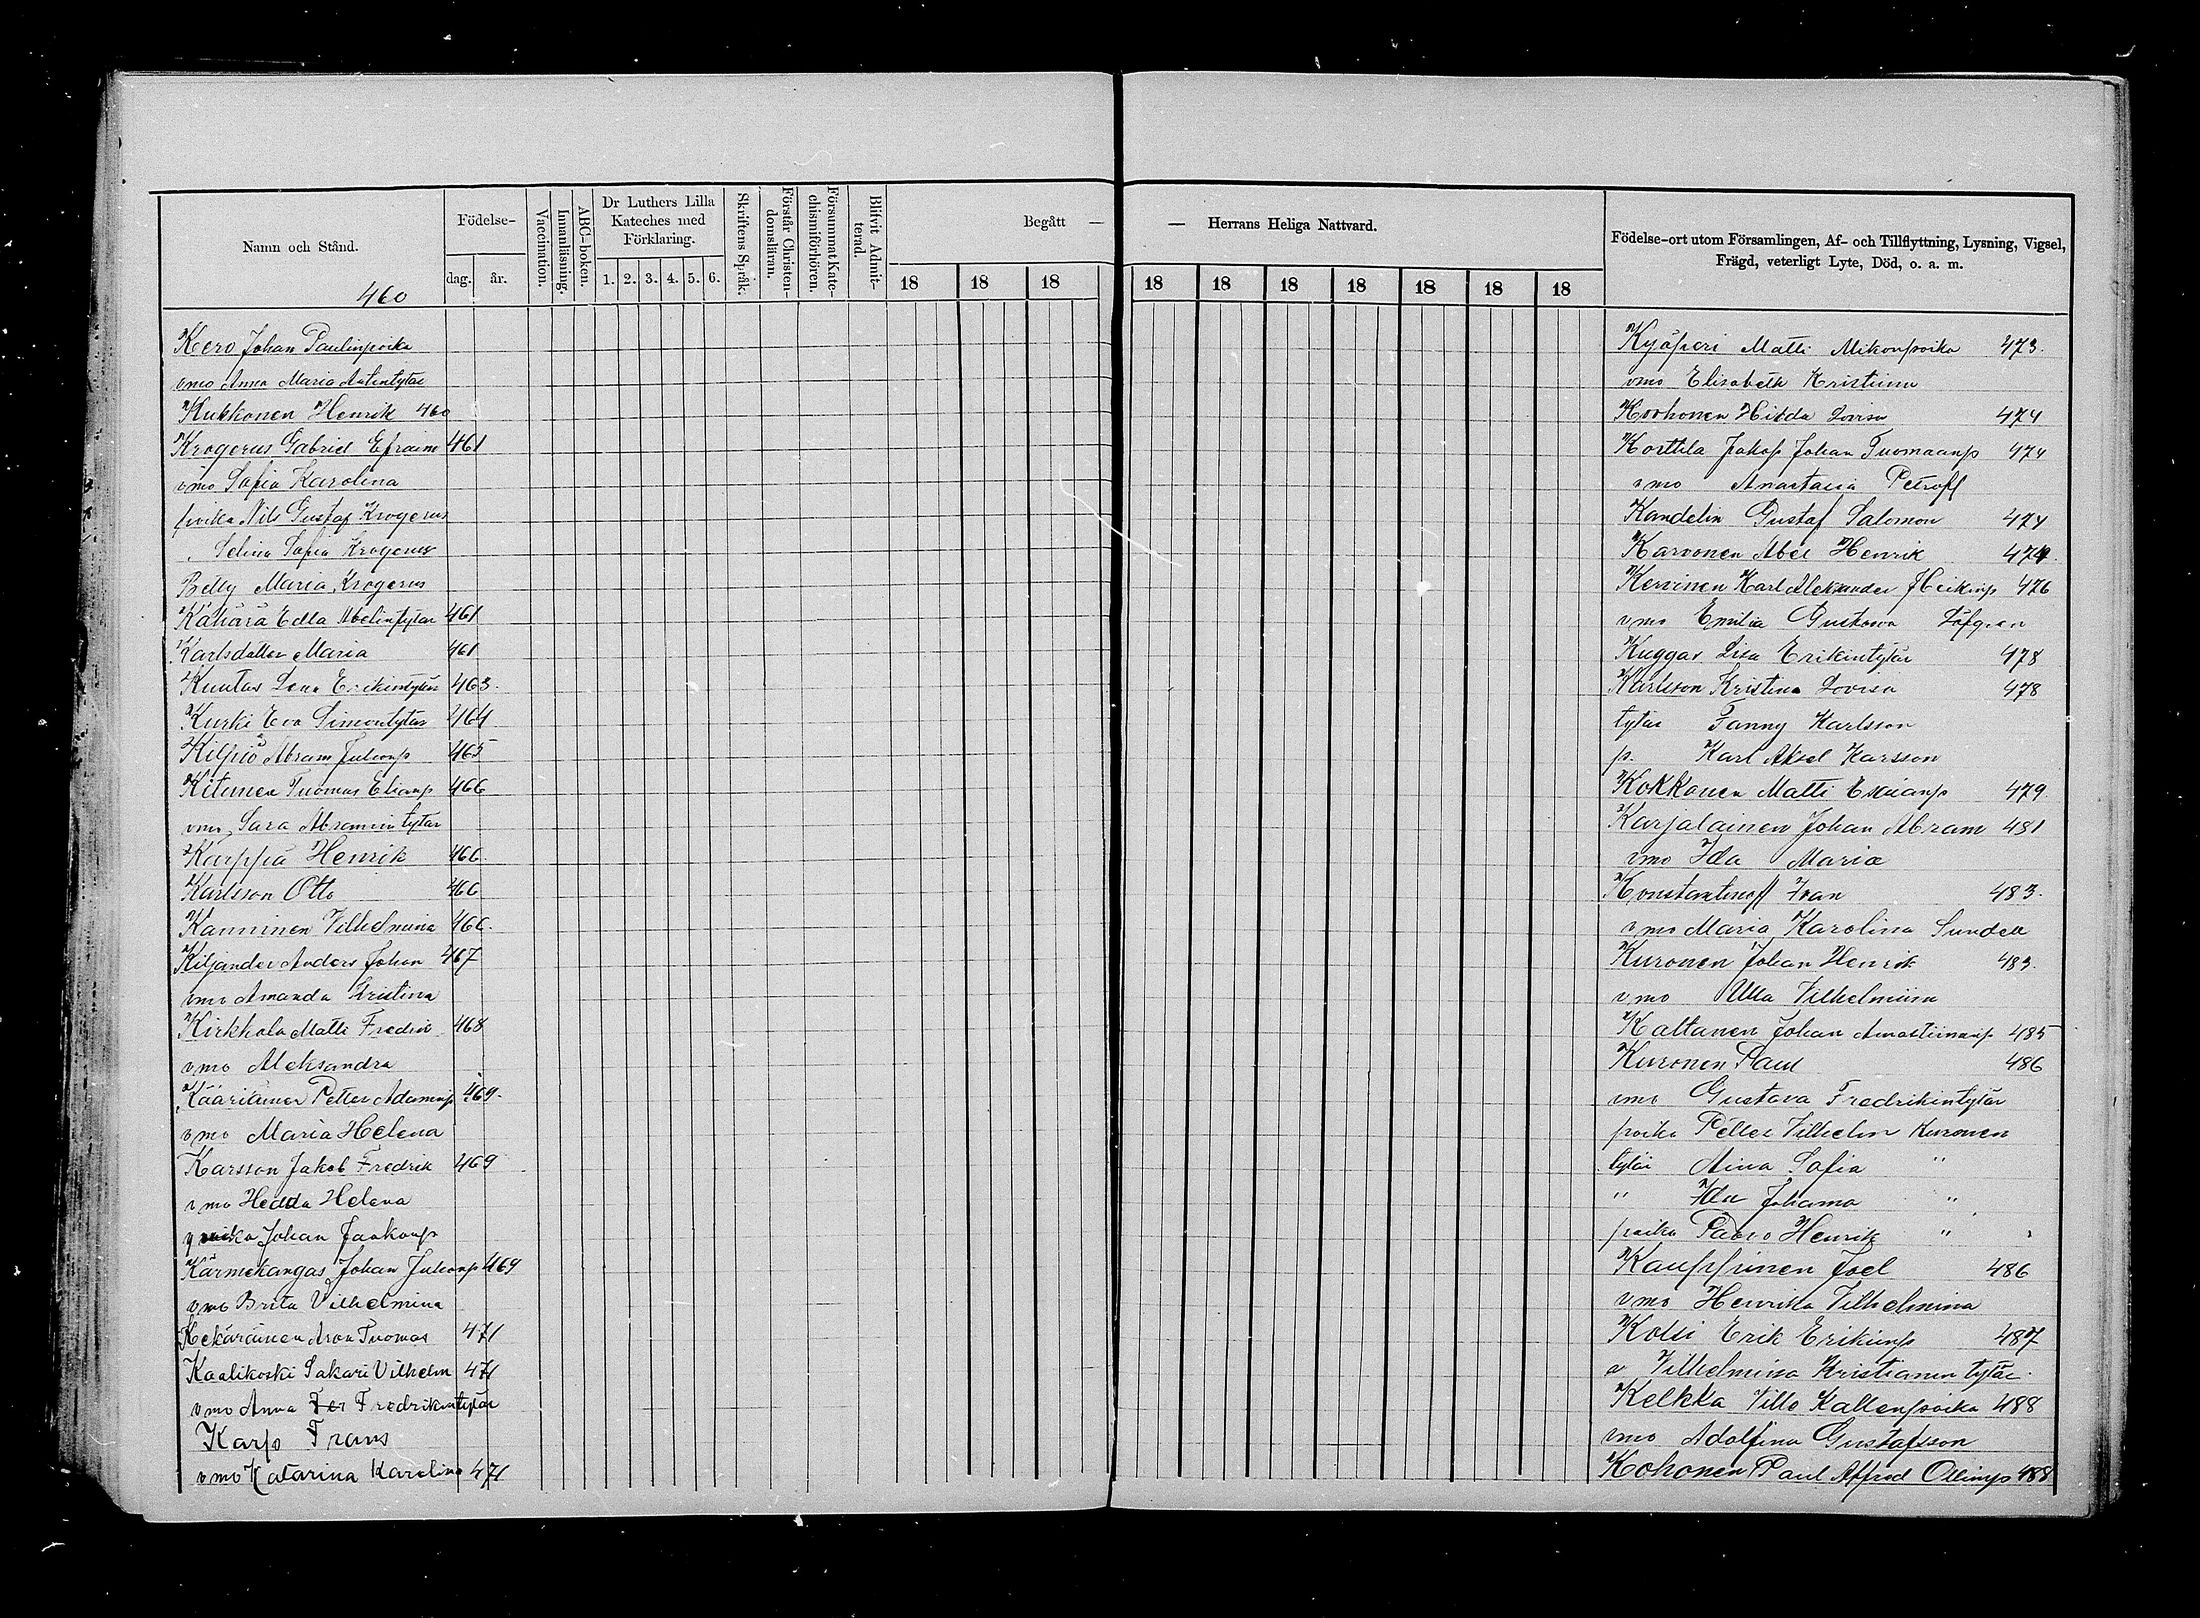 Namn och Stånd.
460
Födelse-
dag.
år.
Vaccination.
Innanläsning.
ABC-boken.
Dr Luthers Lilla
Kateches med
Förklaring.
1. 2. 3. 4. 5. 6.
Skriftens Språk.
Förstår Christen-
domsläran.
Försummat Kate-
chismiförhören.
Blifvit Admit-
terad.
Begått —
18 18 18
— Herrans Heliga Nattvard.
18 18 18 18 18 18 18
Födelse-ort utom Församlingen, Af- och Tillflyttning, Lysning, Vigsel,
Frägd, veterligt Lyte, Död, o. a. m.
Kero Johan Paulinpoika
vmo Anna Maria Antintytär
Kukkonen Henrik 460
Krogerus Gabriel Efraim 461
vmo Sofia Karolina
poika Nils Gustaf Krogerus
Selina Sofia Krogerus
Betty Maria Krogerus
Kähärä Edla Abelintytär 461
Karlsdotter Maria 461
Kuutus Lena Erikintytär 463.
Kurki Eva Simontytär 464
Kilpiö Abram Juhonp 465
Kitunen Tuomas Elianp 466
vmo Sara Abramintytär
Karppia Henrik 466
Karlsson Otto 466
Kanninen Vilhelmina 466.
Kiljander Anders Johan 467
vmo Amanda Kristina
Kirkhola Matti Fredrik 468
vmo Aleksandra
Kääriäinen Petter Adaminp 469.
vmo Maria Helena
Karsson Jakob Fredrik 469
vmo Hedda Helena
poika Johan Jaakonp
Kärmekangas Johan Juhonp 469
vmo Brita Vilhelmina
Kekäräinen Aron Tuomas 471
Kaalikoski Sakari Vilhelm 471
vmo Anna Fer Fredrikintytär
Karp Frans
vmo Katarina Karolina 471
Kyäperi Matti Mikonpoika 473.
vmo Elisabeth Kristiina
Korhonen Hilda Lovisa 474
Korttila Jakop Johan Tuomaanp 474
vmo Anastasia Petroff
Kandelin Gustaf Salomon 474
Karvonen Abel Henrik 474.
Kervinen Karl Aleksander Heikinp 476
vmo Emilia Gustowa Löfgren
Kuggas Lisa Erikintytär 478
Karlsson Kristina Lovisa 478
tytär Fanny Karlsson
p. Karl Aksel Karsson
Kokkonen Matti Esaianp 479
Karjalainen Johan Abram 481
vmo Ida Maria
Konstantinoff Ivan 483.
vmo Maria Karolina Sundell
Kuronen Johan Henrik 483.
vmo Ulla Vilhelmiina
Kattanen Johan Anastiinanp 485
Kuronen Paul 486
vmo Gustava Fredrikintytär
poika Petter Vilhelm Kuronen
tytär Aina Sofia "
" Ida Johanna "
poika Paavo Henrik "
Kauppinen Joel 486
vmo Henrika Vilhelmina
Kotsi Erik Erikinp 487
v Vilhelmina Kristianintytär.
Kelkka Ville Kallenpoika 488
vmo Adolfina Gustafsson
Kohonen Paul Alfred Ollinp 488